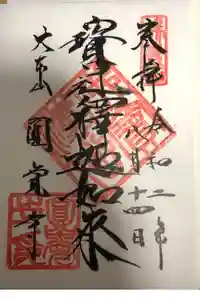 奉拝 令和二年
八月十四日
寳冠釋迦如来
大本山 圓覚寺